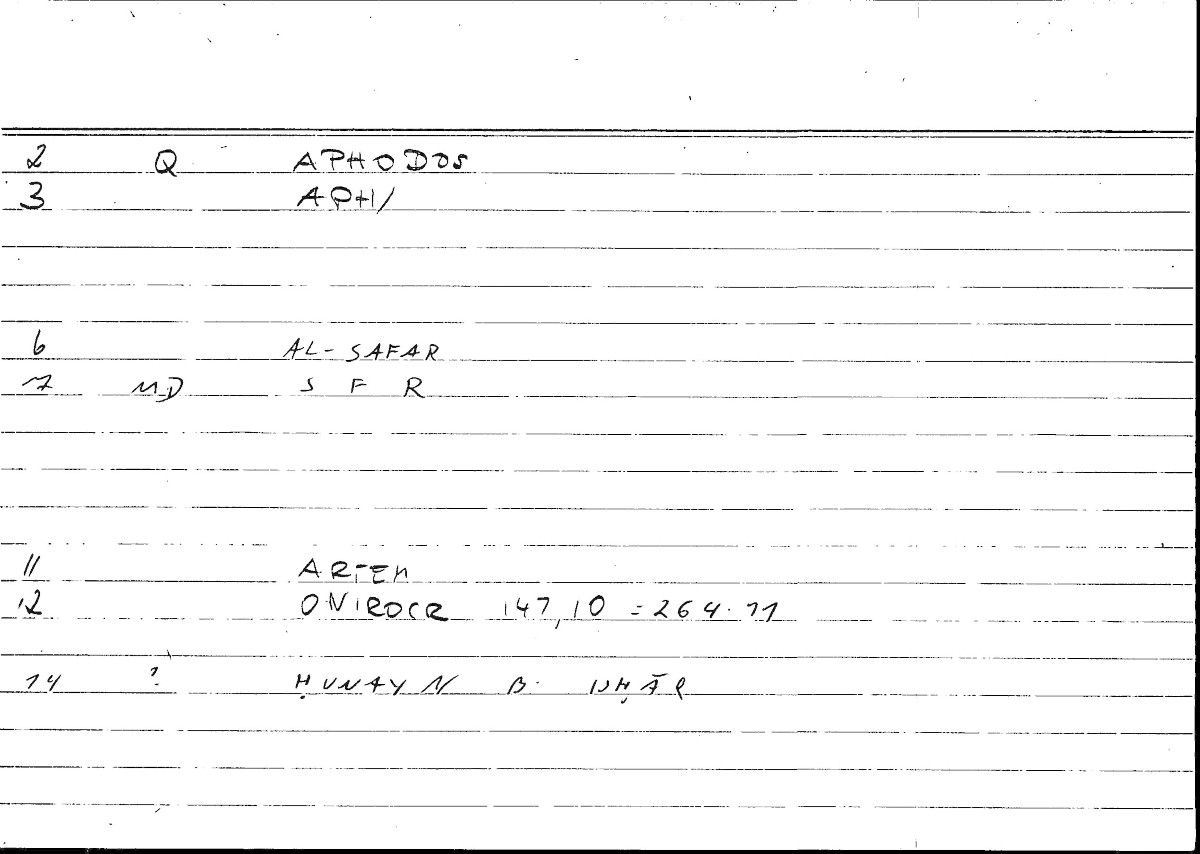 2 Q APHODOS
3 APH/
6 AL-SAFAR
7 MD S F R
11 ARTEM
12 ONIROCR 147,10 = 264.11
14 ? ḤUNAYN B.